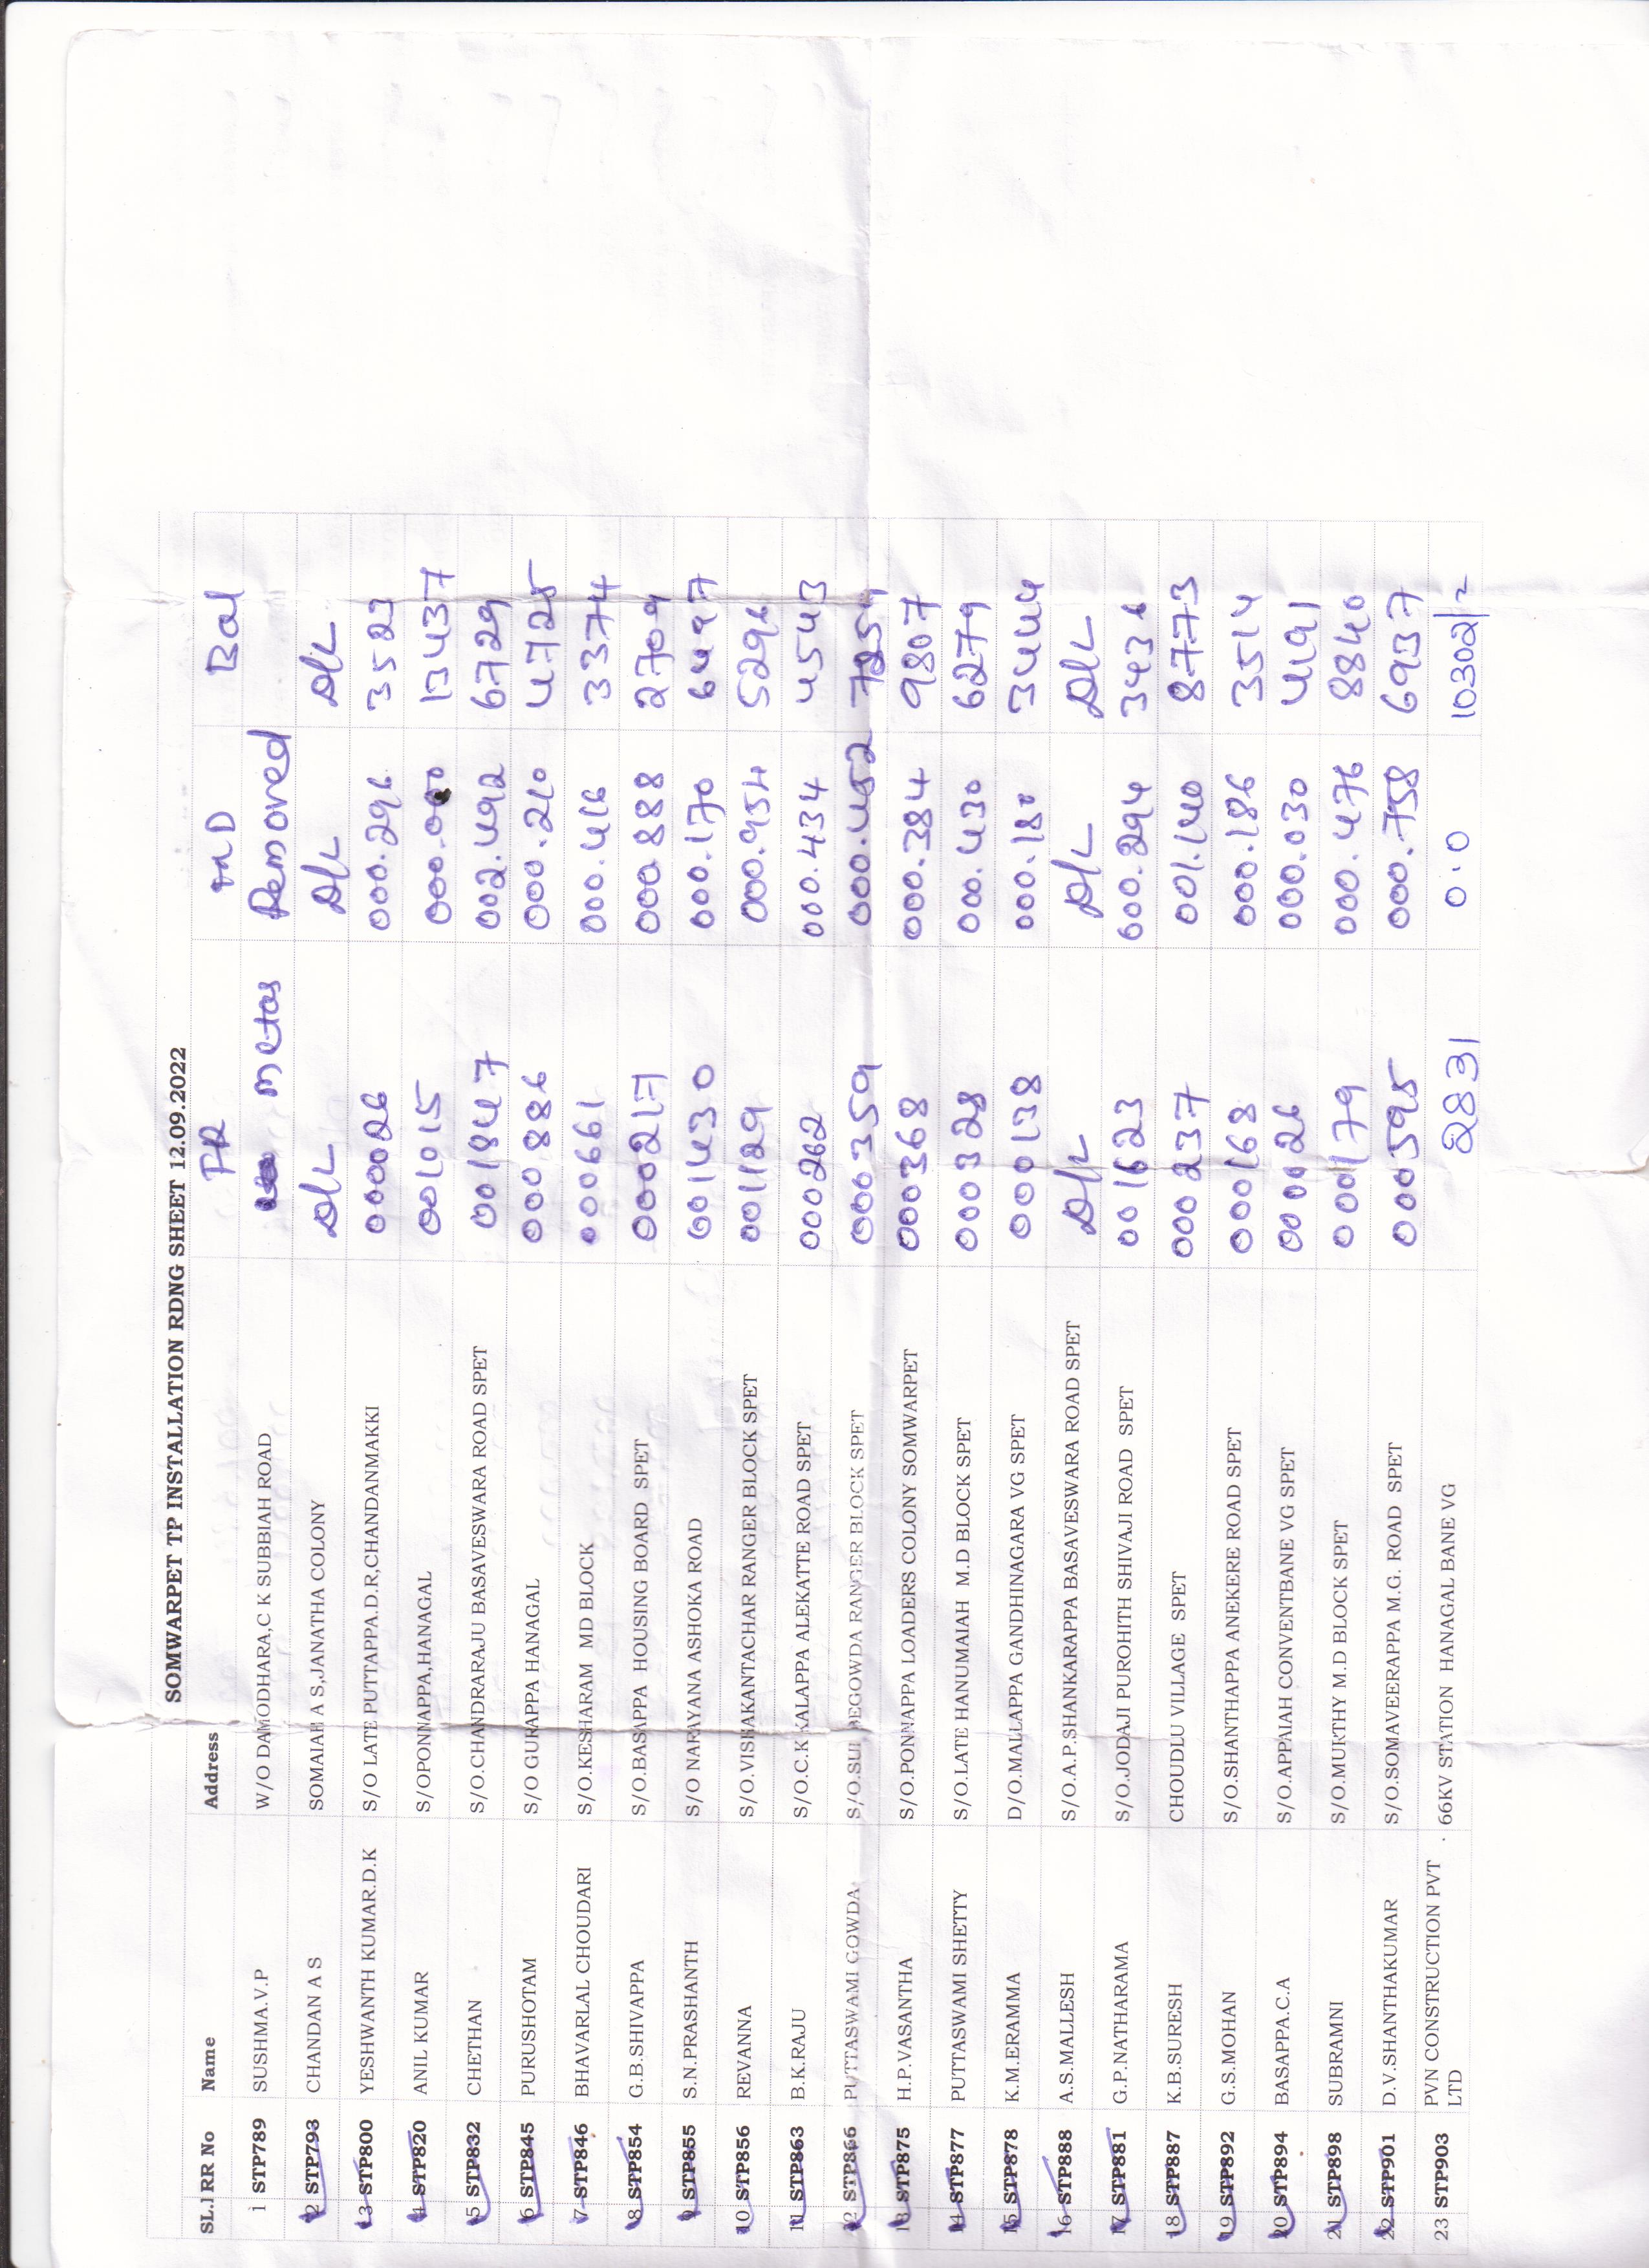 SOMWARPET TP INSTALLATION RDNG SHEET 12.09.2022
SL.I RR No Name Address FR MD Bal
1 STP789 SUSHMA.V.P W/O DAMODHARA,C K SUBBIAH ROAD Removed
2 STP793 CHANDAN A S SOMAIAH A S,JANATHA COLONY D/L D/L D/L
3 STP800 YESHWANTH KUMAR.D.K S/O LATE PUTTAPPA.D.R,CHANDANMAKKI 000026 000.296 3523
4 STP820 ANIL KUMAR S/OPONNAPPA,HANAGAL 001015 13437
5 STP832 CHETHAN S/O.CHANDRARAJU BASAVESWARA ROAD SPET 001847 002.492 6729
6 STP845 PURUSHOTAM S/O GURAPPA HANAGAL 000886 000.210 4725
7 STP846 BHAVARLAL CHOUDARI S/O.KESHARAM MD BLOCK 000661 000.466 3374
8 STP854 G.B.SHIVAPPA S/O.BASAPPA HOUSING BOARD SPET 000217 000.888 2709
9 STP855 S.N.PRASHANTH S/O NARAYANA ASHOKA ROAD 001430 000.170 6497
10 STP856 REVANNA S/O.VISHAKANTACHAR RANGER BLOCK SPET 001129 000.954 5296
11 STP863 B.K.RAJU S/O.C.K KALAPPA ALEKATTE ROAD SPET 000262 000.434 4543
12 STP866 PUTTASWAMI GOWDA S/O.SUBBEGOWDA RANGER BLOCK SPET 000359 000.452 7254
13 STP875 H.P.VASANTHA S/O.PONNAPPA LOADERS COLONY SOMWARPET 000368 000.384 9807
14 STP877 PUTTASWAMI SHETTY S/O.LATE HANUMAIAH M.D BLOCK SPET 000328 000.430 6279
15 STP878 K.M.ERAMMA D/O.MALLAPPA GANDHINAGARA VG SPET 000138 000.180 3444
16 STP888 A.S.MALLESH S/O.A.P.SHANKARAPPA BASAVESWARA ROAD SPET D/L D/L D/L
17 STP881 G.P.NATHARAMA S/O.JODAJI PUROHITH SHIVAJI ROAD SPET 001623 000.294 3436
18 STP887 K.B.SURESH CHOUDLU VILLAGE SPET 000237 001.140 8773
19 STP892 G.S.MOHAN S/O.SHANTHAPPA ANEKERE ROAD SPET 000168 000.186 3514
20 STP894 BASAPPA.C.A S/O.APPAIAH CONVENTBANE VG SPET 000026 000.030 4191
21 STP898 SUBRAMNI S/O.MURTHY M.D BLOCK SPET 000179 000.476 8840
22 STP901 D.V.SHANTHAKUMAR S/O.SOMAVEERAPPA M.G. ROAD SPET 000595 000.758 6937
23 STP903 PVN CONSTRUCTION PVT 66KV STATION HANAGAL BANE VG 2831 0.0
LTD